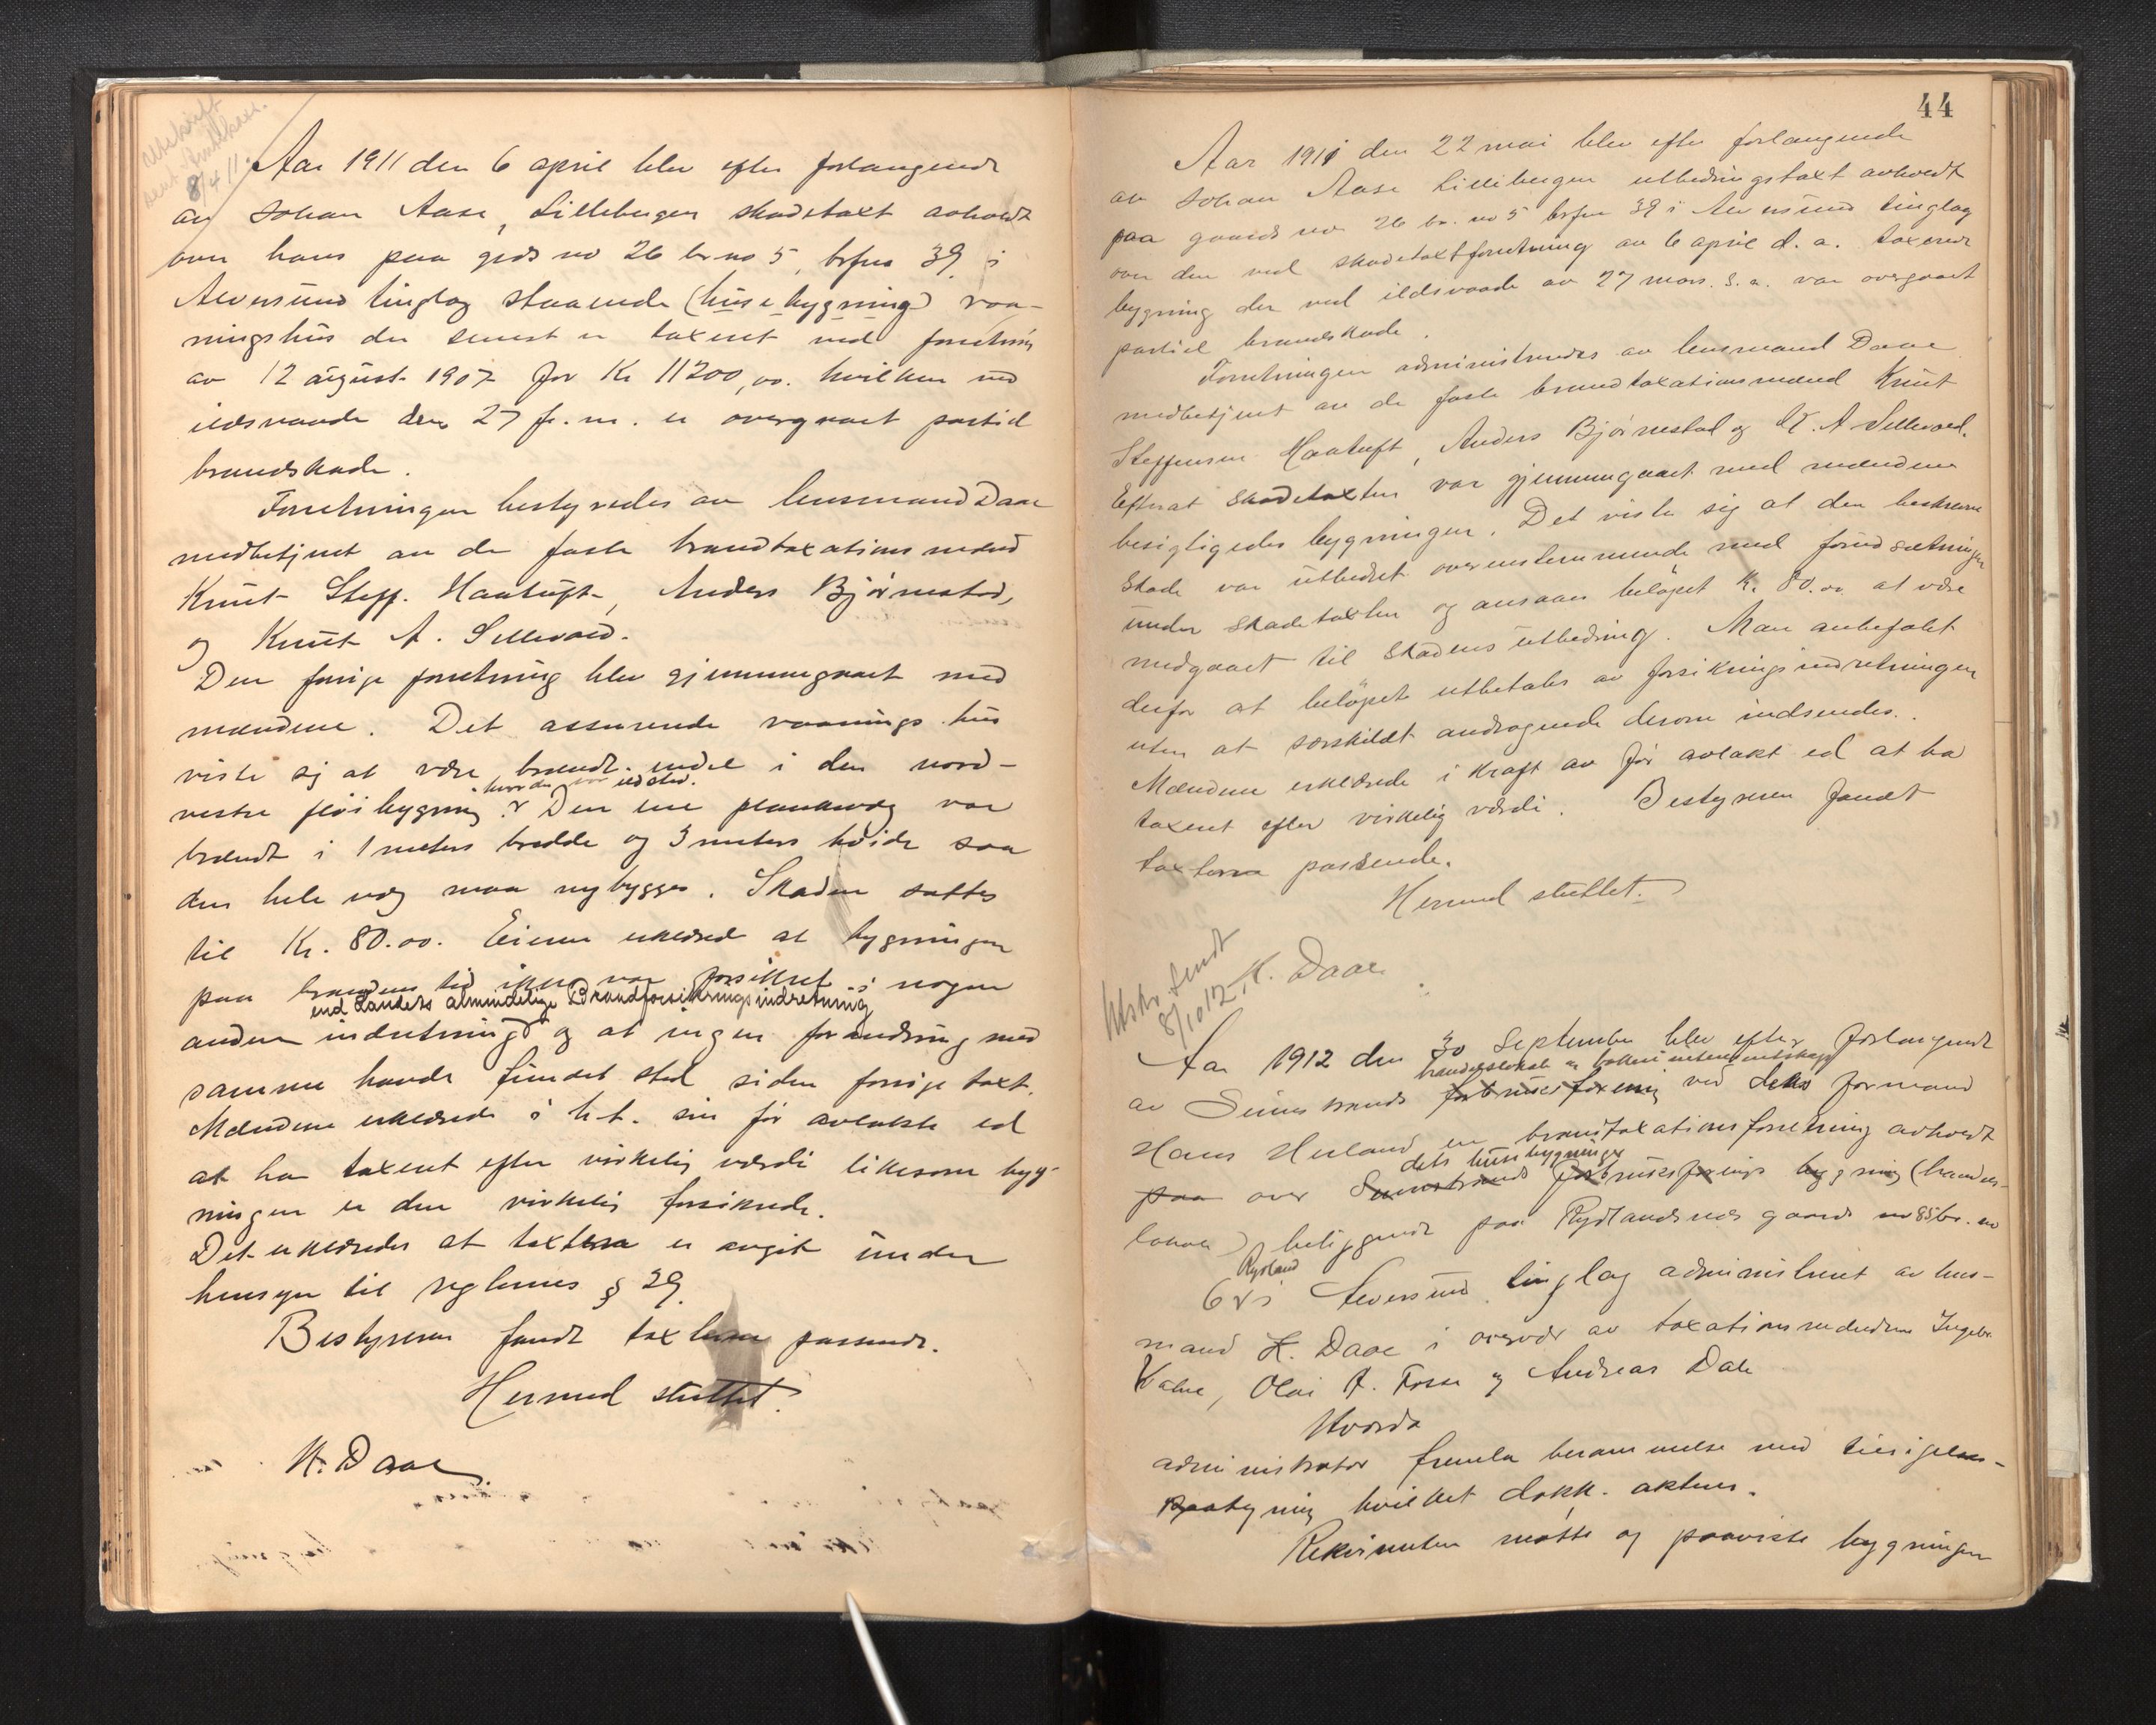 8/4 11.
Aar 1911 den 6 april blev efter forlangende
av Johan Aase, Lillebergen skadetaxt avholdt
over hans paa grds no 26 br no 5, brfno 39 i
Alversund tinglag staaende (husebygning) vaa-
ningshus der senest er taxert ved forretning
av 12 august 1907 for Kr 11200,00. hvilken ved
ildsvaade den 27 f.m. er overgaaet partiel
brandskade.
Forretningen bestyredes av lensmand Daae
medbetjent av de faste brandtaxationsmænd
Knut Steff. Haatuft, Anders Bjørnestad,
og Knut A. Sellevold.
Den forrige forretning blev gjennemgaaet med
mændene. Det assurerede vaanings hus
viste sig at være brændt endel i den nord-
hvor der var ildsted.
vestre fløibygning. Den ene plankevæg var
brændt i 1 meters bredde og 3 meters høide saa
den hele væg maa nybygges. Skaden sattes
til Kr. 80.00. Eieren erklærede at bygningen
paa brandens tid ikke var forsikret i nogen
end Landets almindelige Brandforsikringsindretning
anden indretning og at ingen forandring med
samme havde fundet sted siden forrige taxt.
Mændene erklærede i h.t. sin før avlakte ed
at ha taxert efter virkelig værdi likesom byg-
ningen er den virkelig forsikrede.
Det erklæredes at taxterne er avgit under
hensyn til reglernes § 29.
Bestyreren fandt taxterne passende.
Hermed sluttet.
K. Daae
44
Aar 1911 den 22 mai blev efter forlangende
av Johan Aase Lillebergen utbedringstaxt avholdt
paa gaards no 26 br. no 5 brfno 39 i Alversund tinglag
over den ved skadetaxtforretning av 6 april d.a. taxerede
bygning der ved ildsvaade av 27 mars s.a. var overgaaet
partiel brandskade.
Forretningen administreredes av lensmand Daae
medbetjent av de faste brandtaxationsmænd Knut
Steffensen Haatuft, Anders Bjørnestad og K. A. Sellevold.
Efterat skadetaxten var gjennemgaaet med mændene
besigtigedes bygningen. Det viste sig at den beskrevne
skade var utbedret overensstemmende med forudsætningen
under skadetaxten og ansaaes beløpet Kr. 80.00 at være
medgaaet til skadens utbedring. Man anbefalet
derfor at beløpet utbetales av forsikringsindretningen
uten at særskildt andragende derom indsendes.
Mændene erklærede i kraft av før avlakt ed at ha
taxert efter virkelig værdi. Bestyreren fandt
taxterne passende.
Hermed sluttet.
K. Daae
Utskr. sendt
8/10 12
Aar 1912 den 30 September blev efter forlangende
handelslokale
av Seimstrands forbruksforening ved dets formand
Hans Herland en brandtaxationsforretning avholdt
dets husebygninger
paa over Seimstrands forbruksforenings bygning (handels-
lokale) beliggende paa Rydlandsnes gaards no 85 br. no
Rydland
6 i Alversund tinglag administreret av lens-
mand K. Daae i overvær av taxationsmændene Ingebr.
Valve, Olai A. Fosse og Andreas Dale
Hvorda
administrator fremla berammelse med tilsigelses-
paategning hvilket dokk. aktes.
Rekvirenten møtte og paaviste bygningen